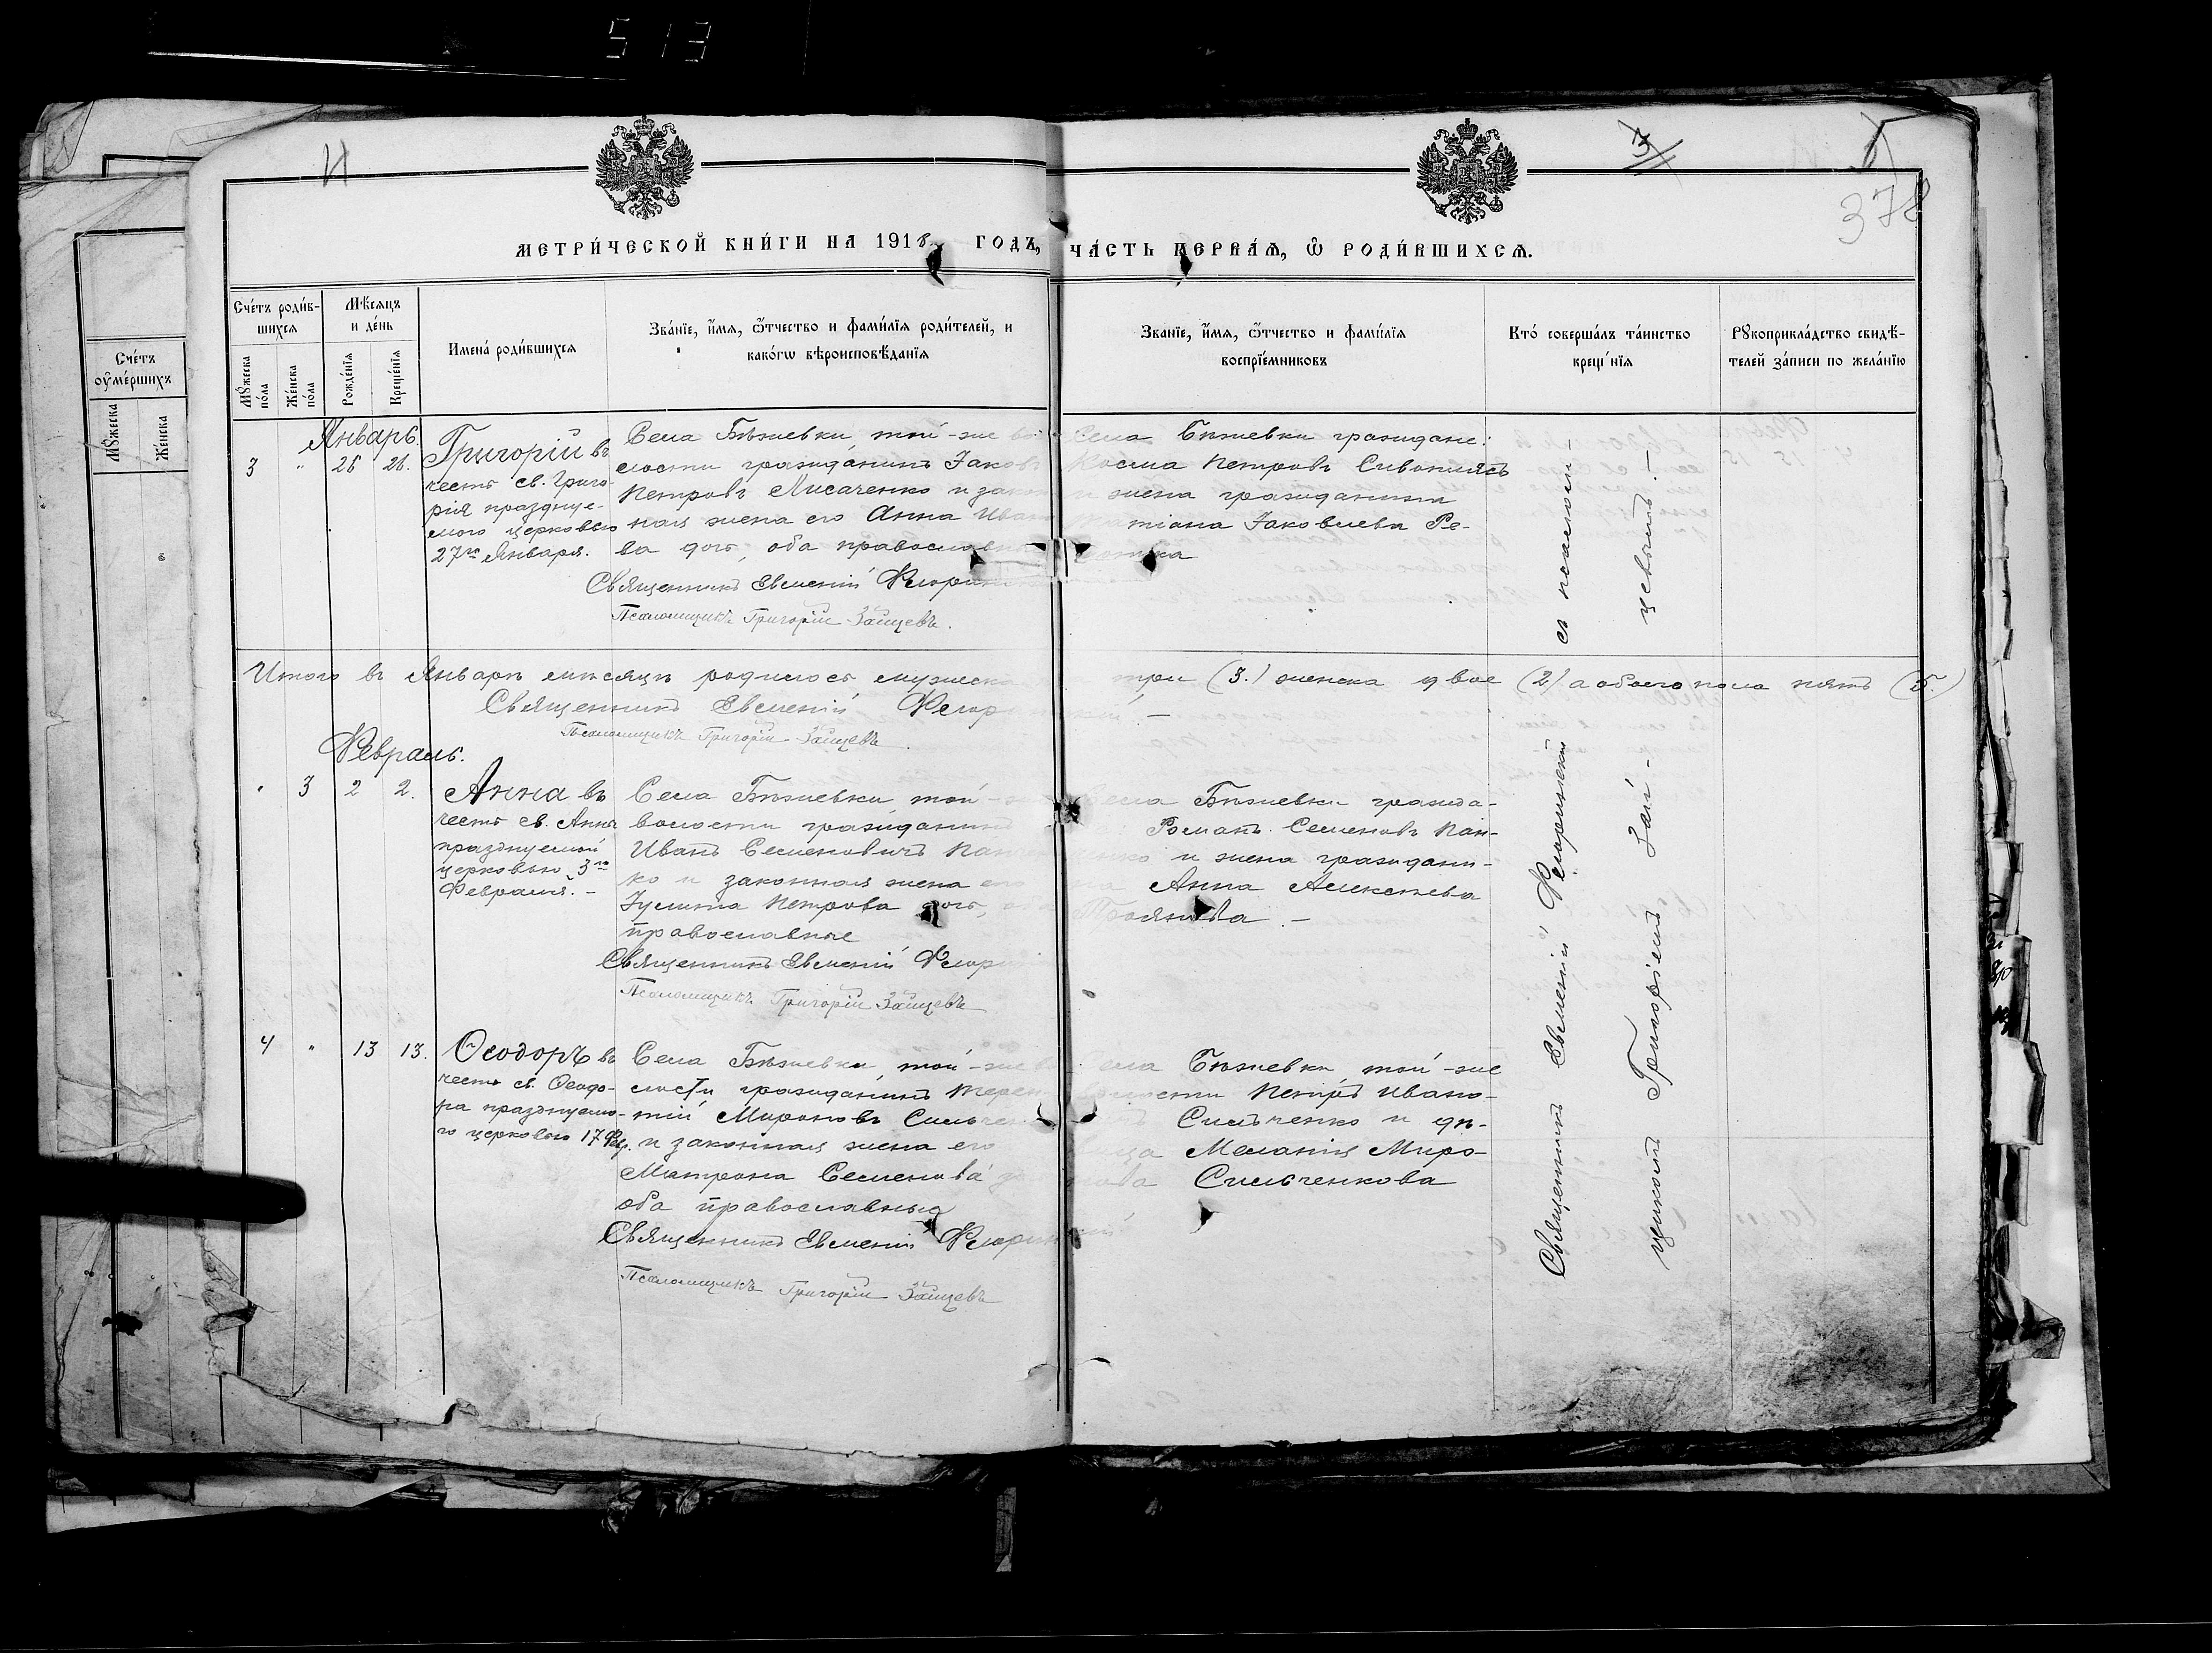 513
378
МЕТРИ́ЧЕСКОЙ КНИ́ГИ НА 1918 ГОДЪ, ЧА́СТЬ ПЕРВА́Ѧ, Ѽ РОДИ́ВШИХСѦ.
Счетъ
оумершихъ
Мꙋжеска
Женска
Сче́тъ роди́в-
шихсѧ
Мꙋжеска по́ла
Же́нска по́ла
Мѣ́сѧцъ
и де́нь
Рожде́нїѧ
Креще́нїѧ
Имена́ роди́вшихсѧ
Зва́нїе, и҆́мѧ, ѻ҆́тчество и фами́лїѧ роди́телей, и
како́гѡ вѣроисповѣ́данїѧ
Зва́нїе, и҆́мѧ, ѻ҆́тчество и фами́лїѧ
воспрїе́мниковъ
Кто́ соверша́лъ та́инство
креще́нїѧ
Рꙋкоприкла́дство свидѣ́-
телей за́писи по жела́нїю
Январь.
3 " 26 26.
Григорій въ
честь св. Григо-
рія празднуе-
мого церковью
27го Января.
Села Бѣжевки, той-же во
лости гражданинъ Іаковъ
Петровъ Лисаченко и закон
ная жена его Анна Иван
ва дочь, оба православн
Священникъ Евменій Флорин
Псаломщикъ Григорій Зайцевъ.
Села Бѣжевки граждане:
Косма Петровъ
и жена гражданина
Іаковлева Ре-
Итого въ Январѣ мѣсяцѣ родилось мужеска три (3.) женска двое (2) а обоего пола пять (5.)
Священникъ Евменій Флор
Псаломщикъ Григорій Зайцевъ.
Февраль.
" 3 2 2.
Анна въ
честь св. Анны
празднуемой
церковью 3го
Февраля. –
Села Бѣжевки, той-
волости гражданинъ
Иванъ Семеновичъ Пан
ко и законная жена его
Іулита Петрова дочь,
православные
Священникъ Евменій Флор
Псаломщикъ Григорій Зайцевъ
Села Бѣжевки гражда-
Романъ Семеновъ Пан-
енко и жена граждани-
на Анна Алексѣева
4 " 13 13.
Ѳеодоръ въ
честь св. Ѳеодо-
ра празднуемо-
го церковью 17 Фев.
Села Бѣжевки, той-же
лости гражданинъ Терен
тій Мироновъ Сильчен
и законная жена его
Матрона Семенова
оба православные
Священникъ Евменій Флорин
Псаломщикъ Григорій Зайцевъ
Села Бѣжевки, той-же
волости Петръ Ивано-
Сильченко и дѣ-
вица Меланія Миро-
нова Сильченкова
Священникъ Евменій Флоринскій
съ псалом-
щикомъ Григоріемъ Зай-
цевымъ. –